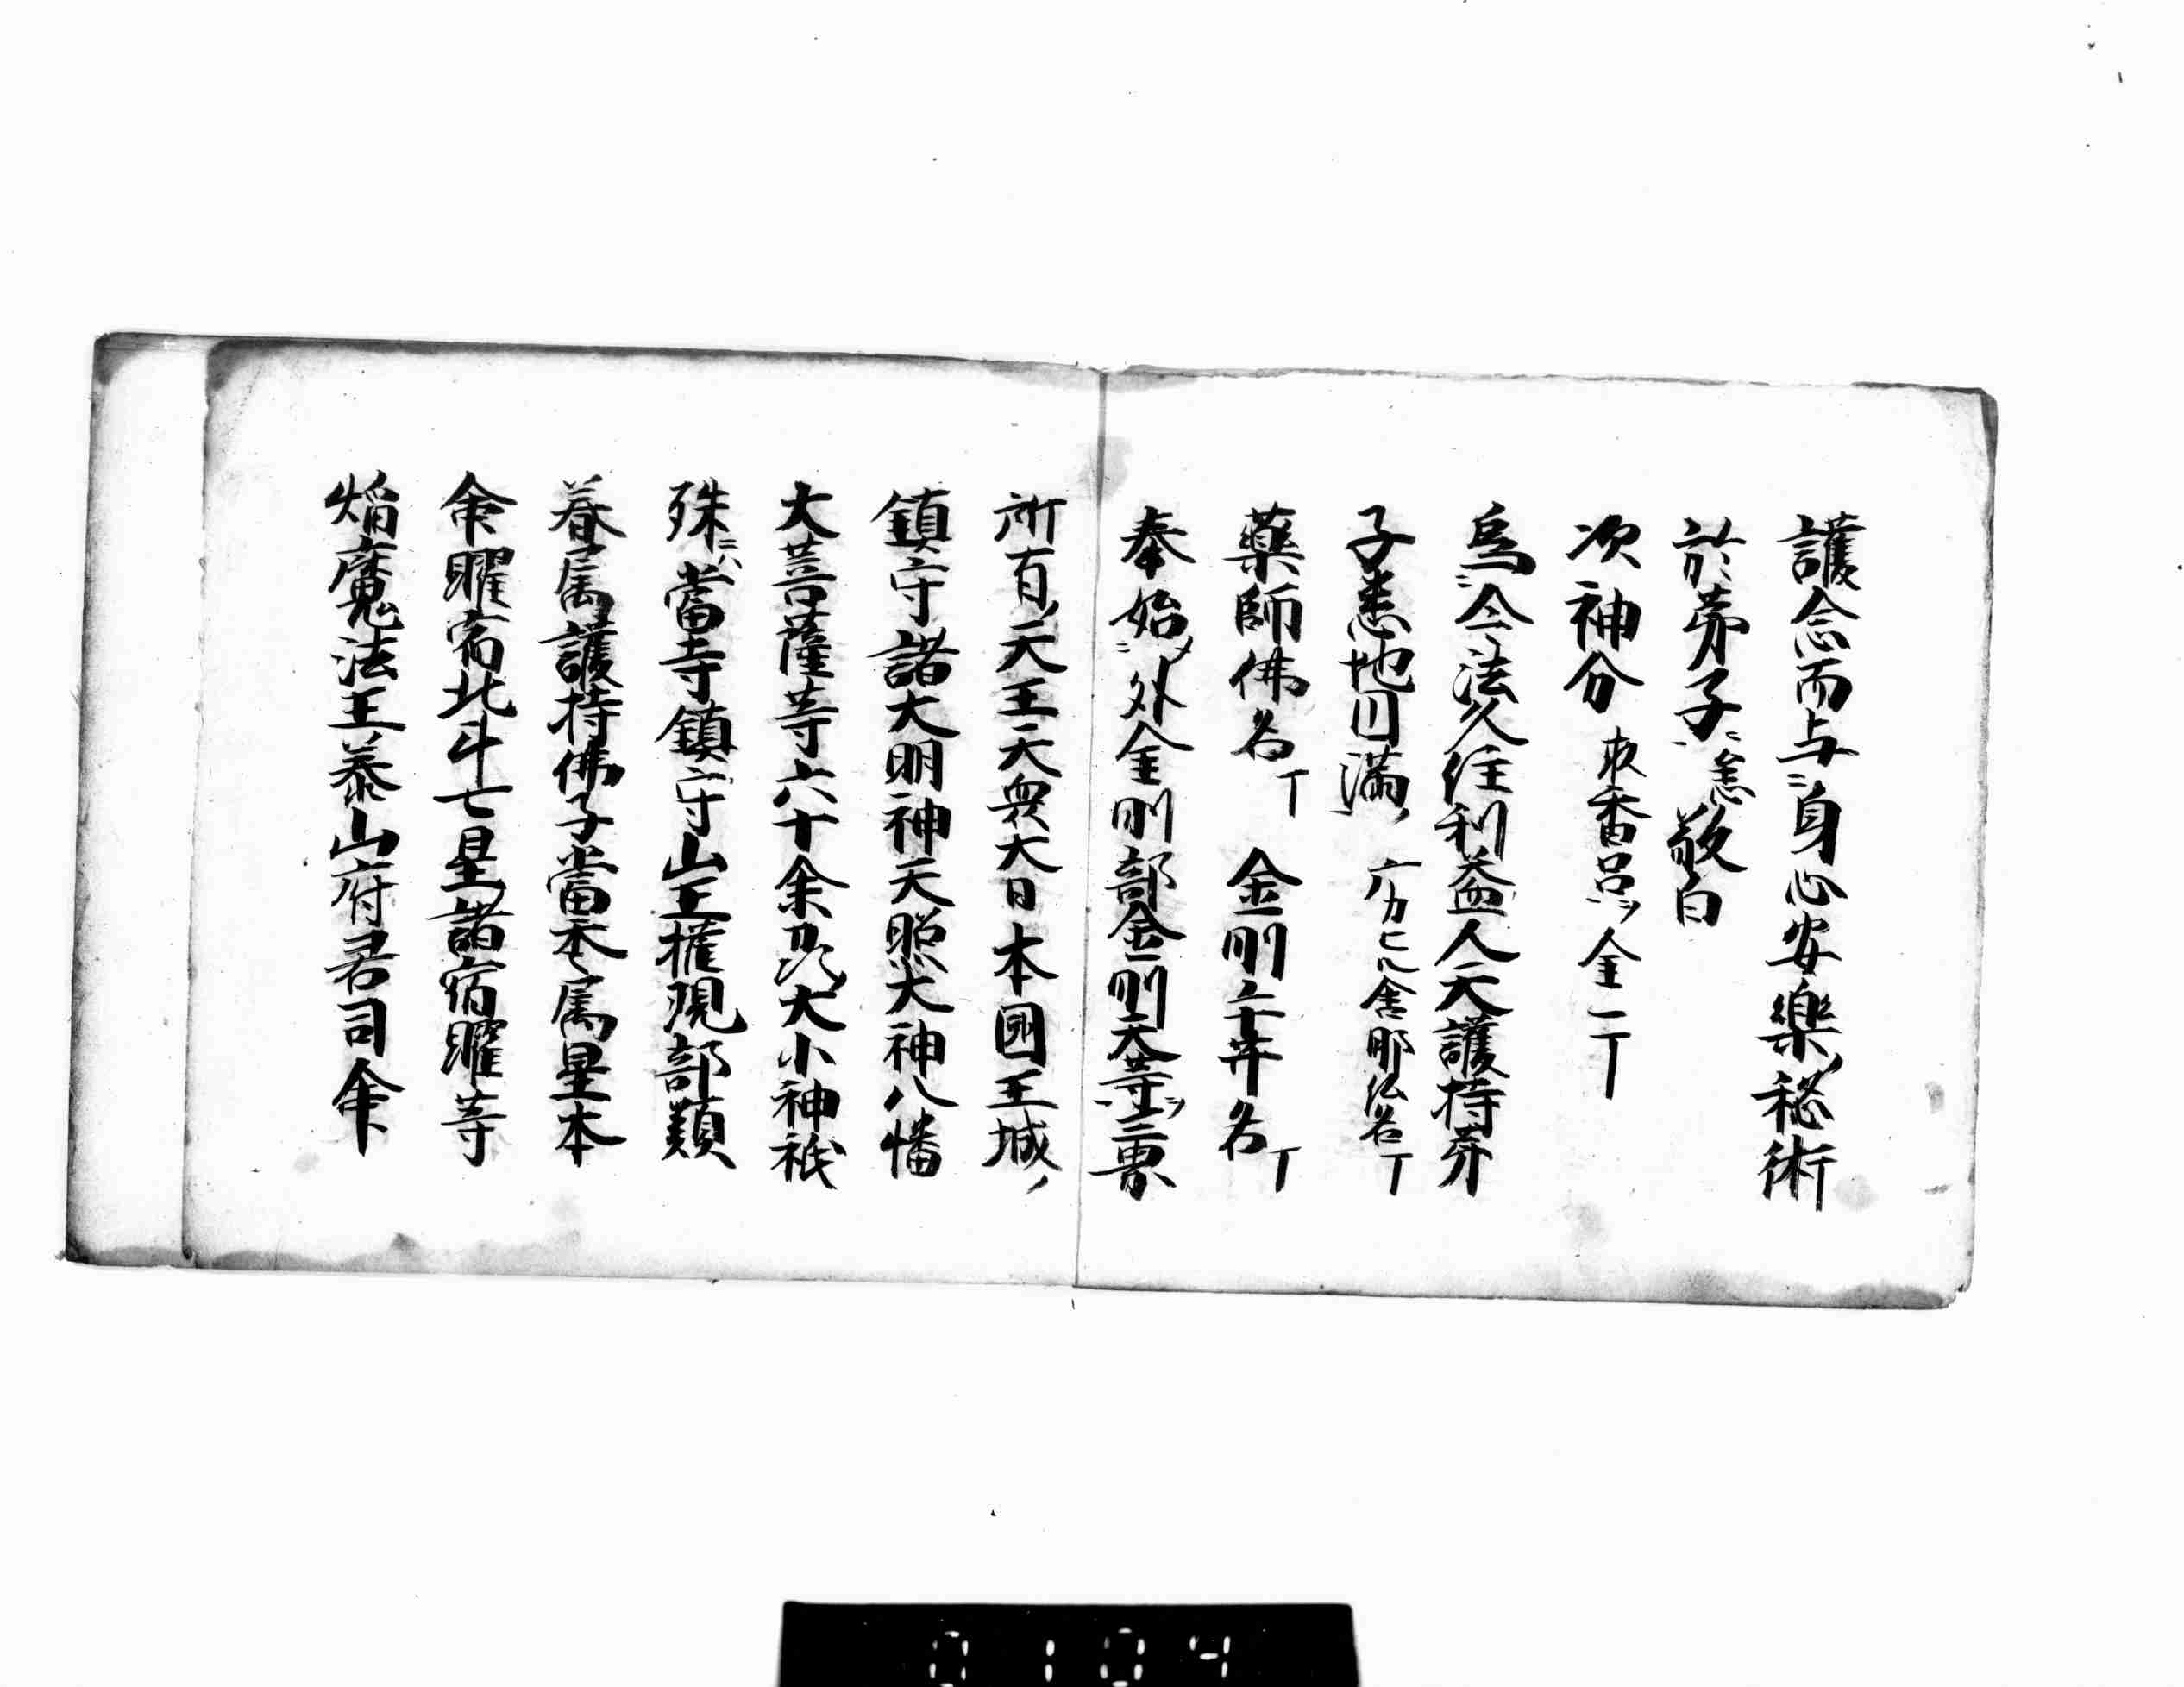 護念而与ニ身心安樂ノ秘術
於弟子ニ恙敬白
次神分 取香呂ヲ 金一丁
為ニ令法久住利益人天護持弟
子悉地円満ノ 舎那仏名丁
藥師佛名丁 金剛手菩薩名丁
奉始メ外金剛部金剛天等ヲ三界
所有ノ天王天衆大日本国王城ノ
鎮守諸大明神天照大神八幡
大菩薩等六十余州大小神祇
殊ニハ當寺鎮守山王權現部類
眷属護持佛子當年属星本
命曜宿北斗七星諸宿曜等
焔魔法王泰山府君司命
0104